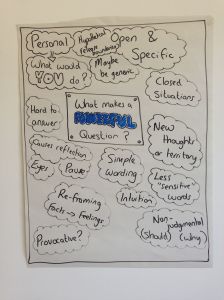 Personal
What would
YOU
do?
Hypothetical
Maybe
be generic
Open &
Specific
Closed
Situations
Hard to
answer
What makes a
POWERFUL
Question?
New
thoughts
or territory
Causes reflection
Eyes
Pause
Simple
wording
Less
"sensitive"
words
Re-framing
Facts → Feelings
Intuition
Non-
judgmental
(should) (why)
Provocative?